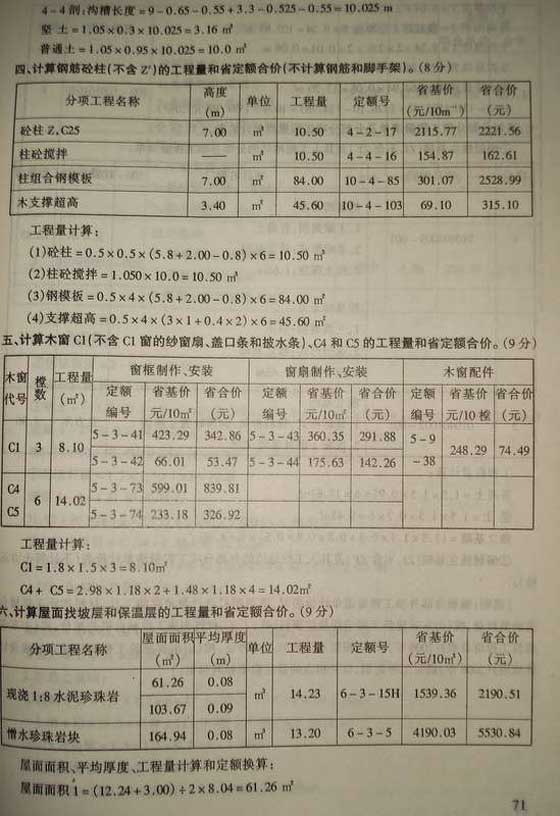 4-4剖:沟槽长度=9-0.65-0.55+3.3-0.525-0.55=10.025 m
坚 土=1.05×0.3×10.025=3.16 m³
普通土=1.05×0.95×10.025=10.0 m³
四、计算钢筋砼柱(不含Z')的工程量和省定额合价(不计算钢筋和脚手架)。(8分)
分项工程名称 高度(m) 单位 工程量 定额号 省基价(元/10m⁻³) 省合价(元)
砼柱Z,C25 7.00 m³ 10.50 4-2-17 2115.77 2221.56
柱砼搅拌 —— m³ 10.50 4-4-16 154.87 162.61
柱组合钢模板 7.00 m² 84.00 10-4-85 301.07 2528.99
木支撑超高 3.40 m² 45.60 10-4-103 69.10 315.10
工程量计算:
(1)砼柱=0.5×0.5×(5.8+2.00-0.8)×6=10.50 m³
(2)柱砼搅拌=1.050×10.0=10.50 m³
(3)钢模板=0.5×4×(5.8+2.00-0.8)×6=84.00 m²
(4)支撑超高=0.5×4×(3×1+0.4×2)×6=45.60 m²
五、计算木窗C1(不含C1窗的纱窗扇、盖口条和披水条)、C4和C5的工程量和省定额合价。(9分)
木窗代号 樘数 工程量(m²) 窗框制作、安装 窗扇制作、安装 木窗配件
定额编号 省基价元/10m² 省合价(元) 定额编号 省基价元/10m² 省合价(元) 定额编号 省基价元/10樘 省合价(元)
C1 3 8.10 5-3-41 423.29 342.86 5-3-43 360.35 291.88 5-9-38 248.29 74.49
5-3-42 66.01 53.47 5-3-44 175.63 142.26
C4 C5 6 14.02 5-3-73 599.01 839.81
5-3-74 233.18 326.92
工程量计算:
C1=1.8×1.5×3=8.10m²
C4+ C5=2.98×1.18×2+1.48×1.18×4=14.02m²
六、计算屋面找坡层和保温层的工程量和省定额合价。(9分)
分项工程名称 屋面面积(m²) 平均厚度(m) 单位 工程量 定额号 省基价(元/10m³) 省合价(元)
现浇1:8水泥珍珠岩 61.26 0.08 m³ 14.23 6-3-15H 1539.36 2190.51
103.67 0.09
憎水珍珠岩块 164.94 0.08 m³ 13.20 6-3-5 4190.03 5530.84
屋面面积、平均厚度、工程量计算和定额换算:
屋面面积1=(12.24+3.00)÷2×8.04=61.26 m²
71